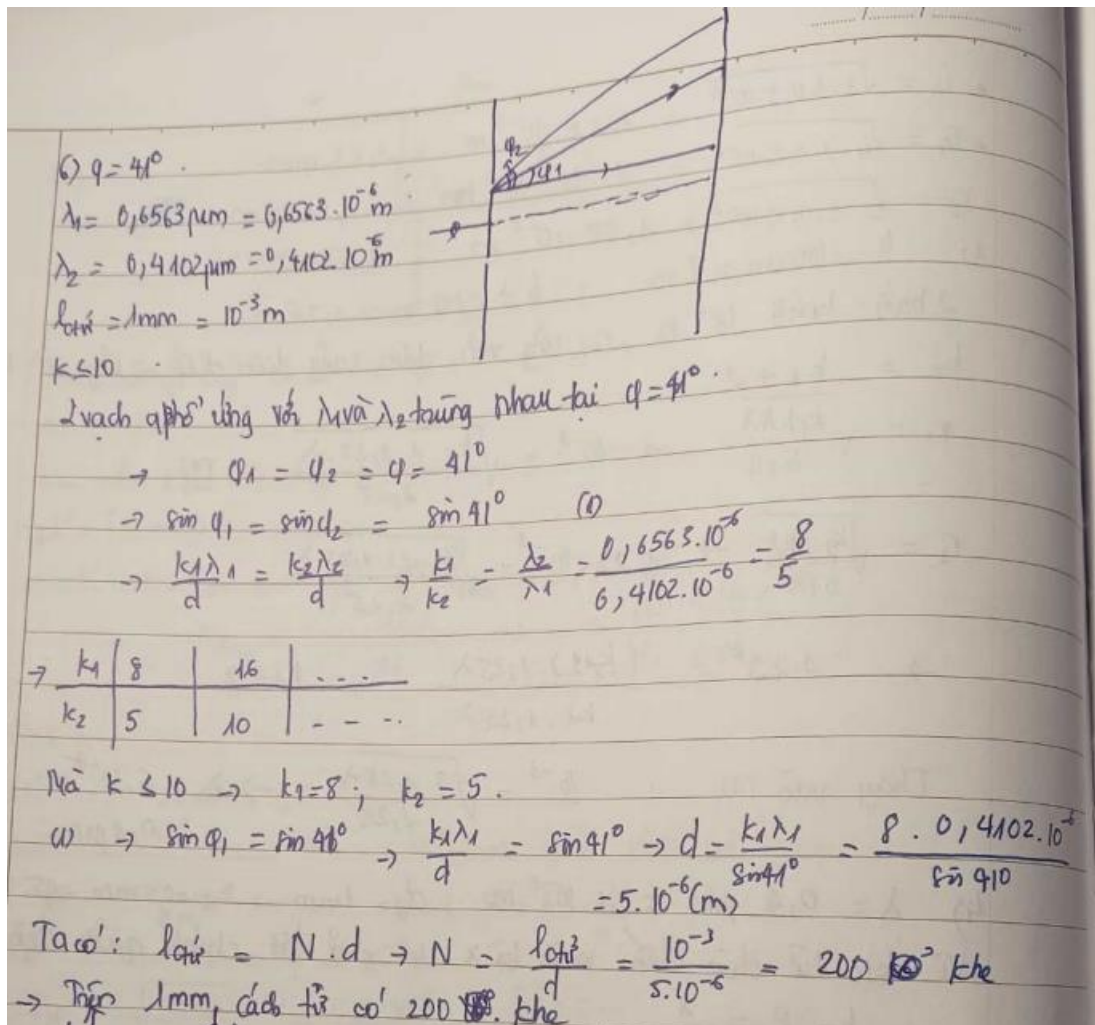 φ2
φ1
6) φ = 41°.
λ1 = 0,6563 μm = 0,6563.10^-6 m
λ2 = 0,4102 μm = 0,4102.10^-6 m
l ctừ = 1mm = 10^-3 m
K ≤ 10
2 vạch qphổ ứng với λ1 và λ2 trùng nhau tại φ = 41°.
→ φ1 = φ2 = φ = 41°
→ sin φ1 = sin φ2 = sin 41° (1)
→ k1λ1/d = k2λ2/d → k1/k2 = λ2/λ1 = 0,6563.10^-6/0,4102.10^-6 = 8/5
→ k1 | 8 | 16 | ....
k2 | 5 | 10 | - - ..
Mà K ≤ 10 → k1 = 8; k2 = 5.
(1) → sin φ1 = sin 41° → k1λ1/d = sin 41° → d = k1λ1/sin 41° = 8.0,4102.10^-6/sin 41°
= 5.10^-6 (m)
Ta có: l ctừ = N.d → N = l ctừ/d = 10^-3/5.10^-6 = 200 khe
→ Trên 1mm, cách tử có 200 khe